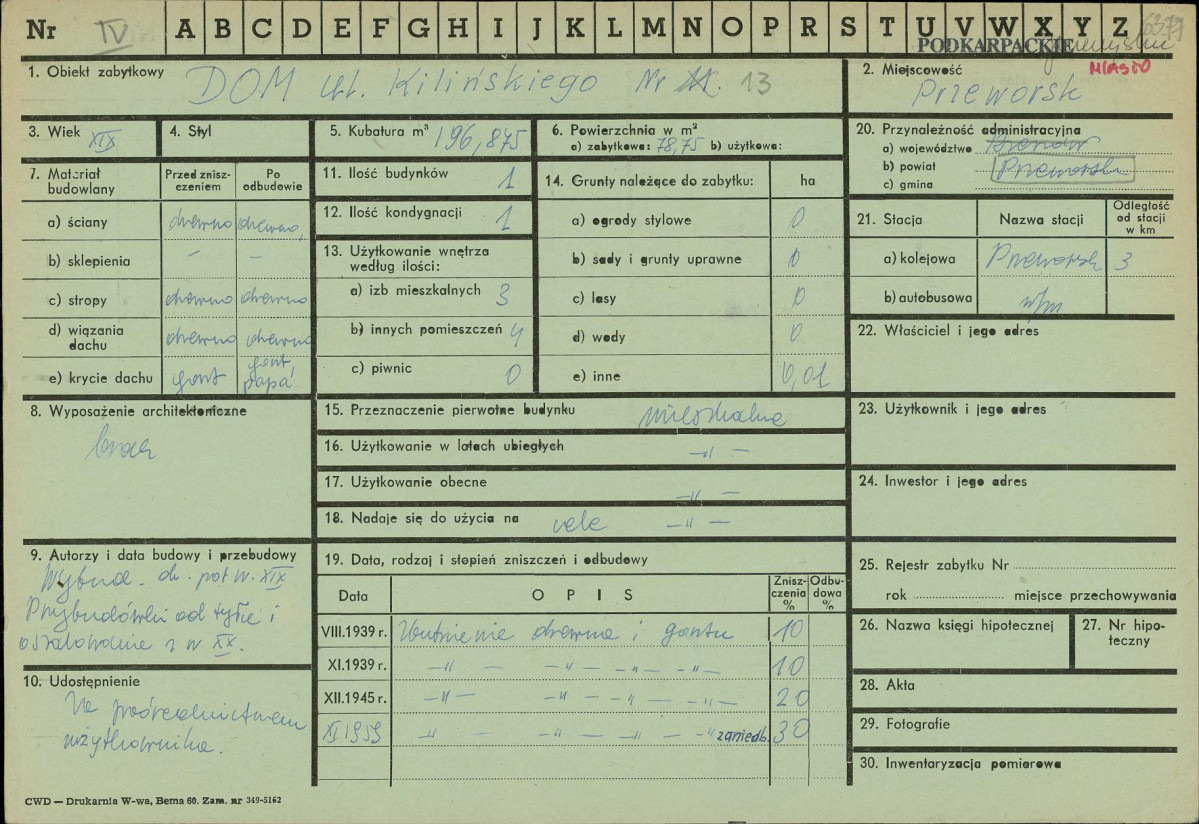 Nr IV A B C D E F G H I J K L M N O P R S T U V W X Y Z 6377
PODKARPACKIE
MIASTO
1. Obiekt zabytkowy DOM ul. Kilińskiego Nr 11. 13
2. Miejscowość Przeworsk
3. Wiek XIX
4. Styl
5. Kubatura m³ 196,875
6. Powierzchnia w m²
a) zabytkowa: 78,75 b) użytkowa:
20. Przynależność administracyjna
a) województwo
b) powiat Przeworsk
c) gmina
7. Materiał budowlany
Przed zniszczeniem
Po odbudowie
a) ściany drewno drewno,
b) sklepienia – –
c) stropy drewno drewno
d) wiązania dachu drewno drewno
e) krycie dachu gont gont, papa
11. Ilość budynków 1
12. Ilość kondygnacji 1
13. Użytkowanie wnętrza według ilości:
a) izb mieszkalnych 3
b) innych pomieszczeń 4
c) piwnic 0
14. Grunty należące do zabytku: ha
a) ogrody stylowe 0
b) sady i grunty uprawne 0
c) lasy 0
d) wody 0
e) inne 0,01
21. Stacja
Nazwa stacji
Odległość od stacji w km
a) kolejowa Przeworsk 3
b) autobusowa w/m
22. Właściciel i jego adres
8. Wyposażenie architektoniczne
brak
15. Przeznaczenie pierwotne budynku mieszkalne
16. Użytkowanie w latach ubiegłych –"–
17. Użytkowanie obecne –"–
18. Nadaje się do użycia na cele –"–
23. Użytkownik i jego adres
24. Inwestor i jego adres
9. Autorzy i data budowy i przebudowy
Wybud. dr. poł w. XIX
Przybudówki od tyłu i
oszalowanie z w XX.
10. Udostępnienie
Za pośrednictwem
użytkownika.
19. Data, rodzaj i stopień zniszczeń i odbudowy
Data
OPIS
Zniszczenia %
Odbudowa %
VIII.1939 r. Butwienie drewna i gontu 10
XI.1939 r. –"– –"–"–"– 10
XII.1945 r. –"– –"–"–"– 20
XI 1959 –"– –"–"–"– zaniedb. 30
25. Rejestr zabytku Nr
rok miejsce przechowywania
26. Nazwa księgi hipotecznej
27. Nr hipoteczny
28. Akta
29. Fotografie
30. Inwentaryzacja pomiarowa
CWD — Drukarnia W-wa, Bema 60. Zam. nr 349-5162